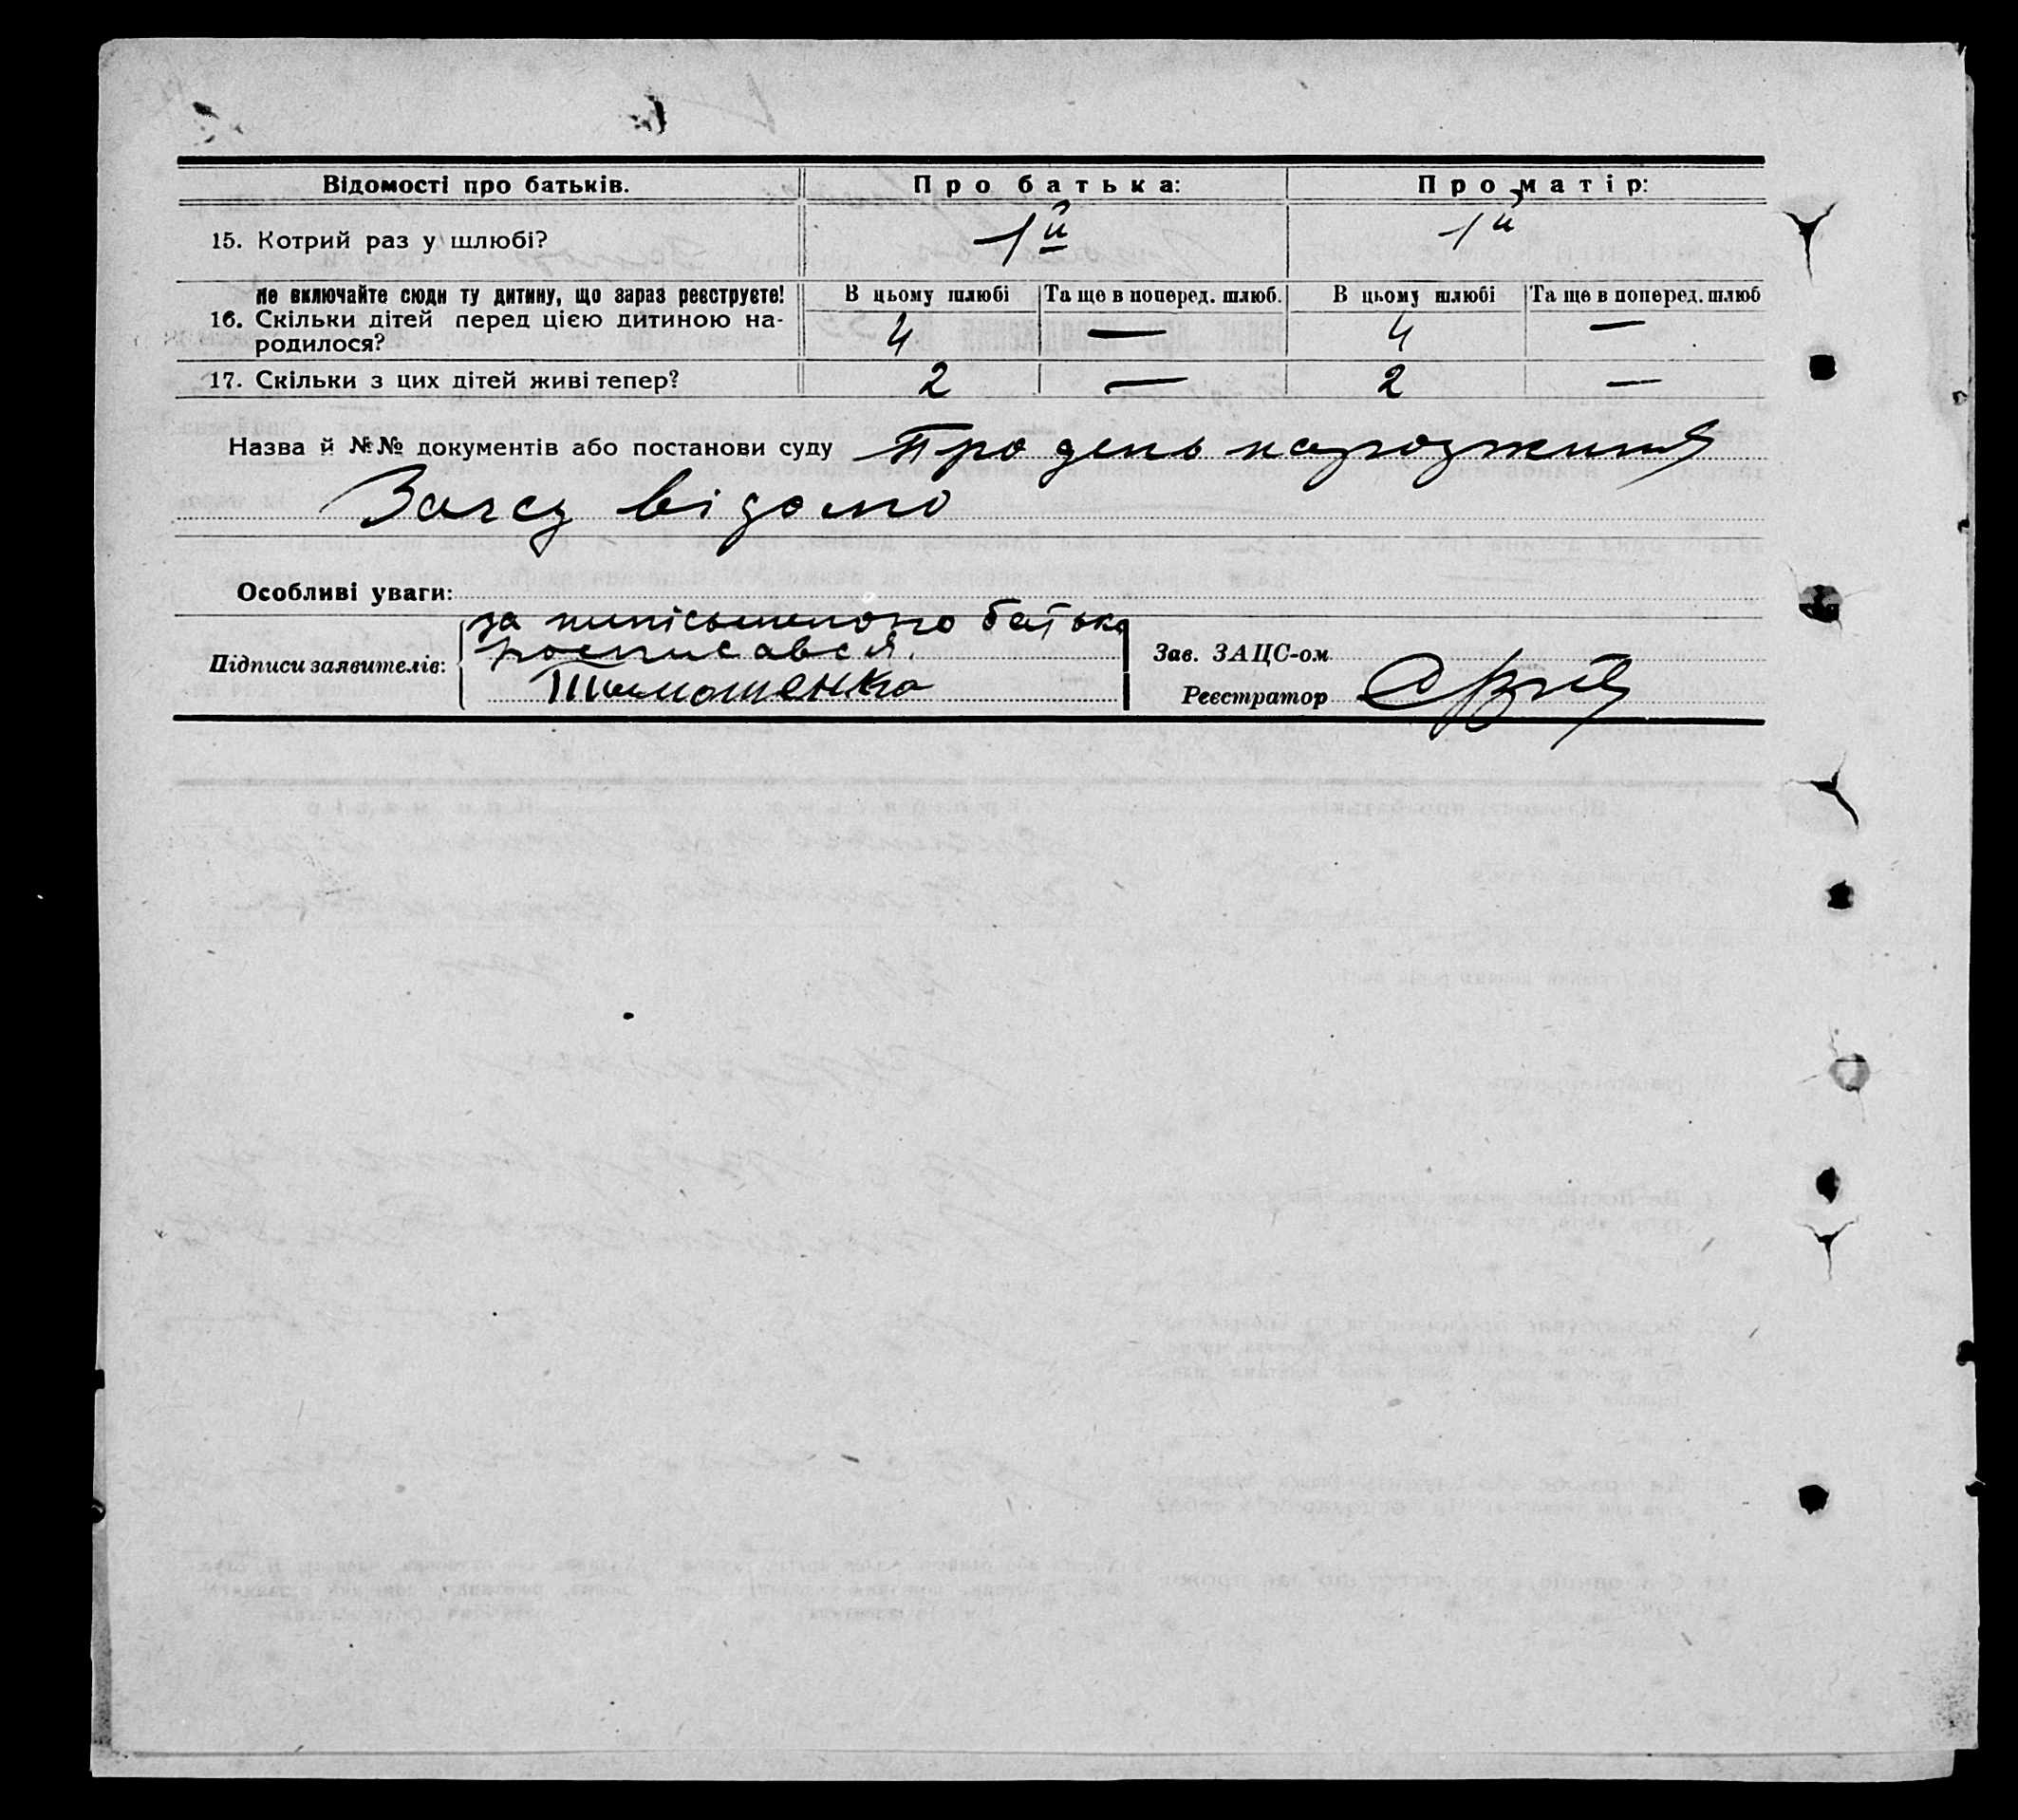 Відомості про батьків. Про батька: Про матір:
15. Котрий раз у шлюбі? 1й 1й
Не включайте сюди ту дитину, що зараз реєструєте! В цьому шлюбі Та ще в поперед. шлюб. В цьому шлюбі Та ще в поперед. шлюб
16. Скільки дітей перед цією дитиною на-
родилося? 4 — 4 —
17. Скільки з цих дітей живі тепер? 2 — 2 —
Назва й №№ документів або постанови суду Про день народження
Загсу відомо
Особливі уваги:
за неписьменного батька
Підписи заявителів: росписався.
Тимошенко
Зав. ЗАЦС-ом
Реєстратор